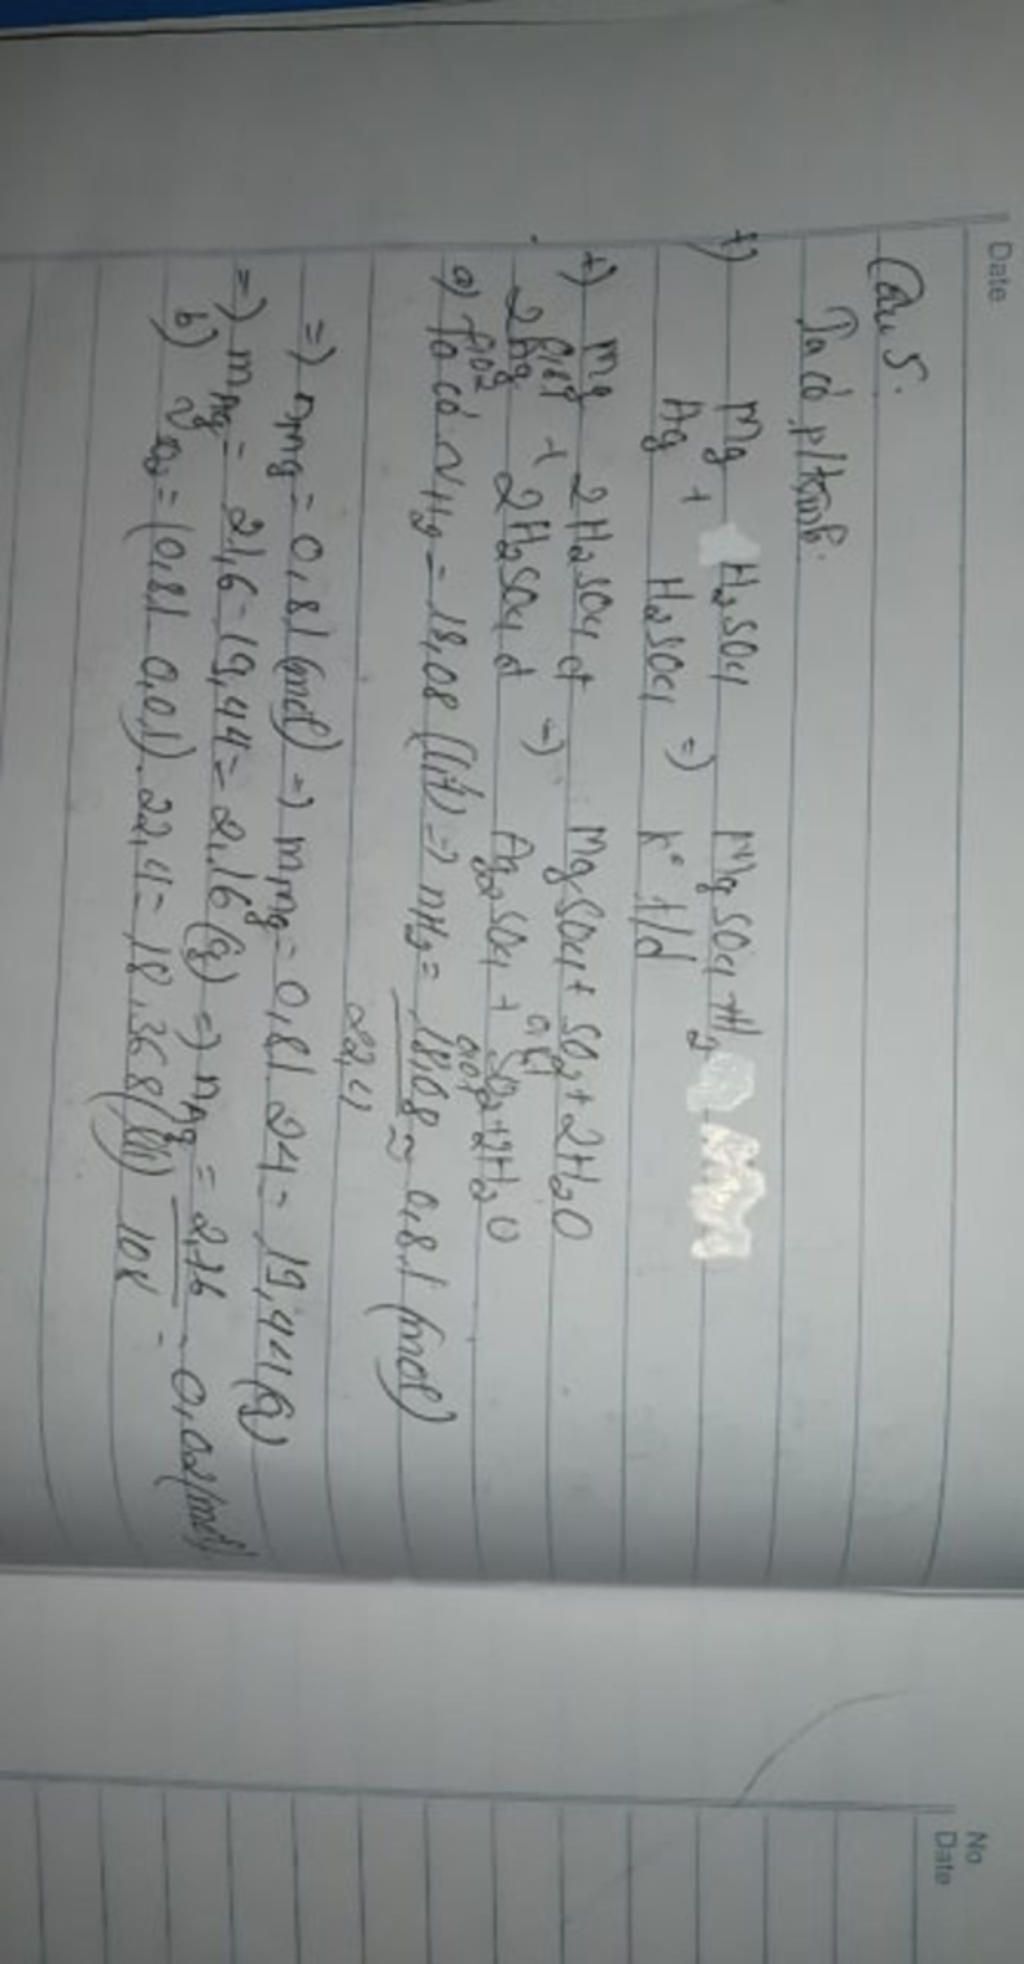 Date
Câu 5.
Ta có p/trình:
+) Mg + H2SO4 MgSO4 + H2
Ag + H2SO4 => k° t/d
+) Mg + 2H2SO4 đ -> MgSO4 + SO2 + 2H2O
0,81 0,81
2Ag + 2H2SO4 đ -> Ag2SO4 + SO2 + 2H2O
0,02 0,01
a) Ta có VH2 = 18,08 (lít) => nH2 = 18,08 / 22,4 ≈ 0,81 (mol)
=> nMg = 0,81 (mol) => mMg = 0,81.24 = 19,44 (g)
=> mAg = 21,6 - 19,44 = 2,16 (g) => nAg = 2,16 / 108 = 0,02 (mol)
b) = (0,81 0,01).22,4 = 18,368 (lít)
No
Date